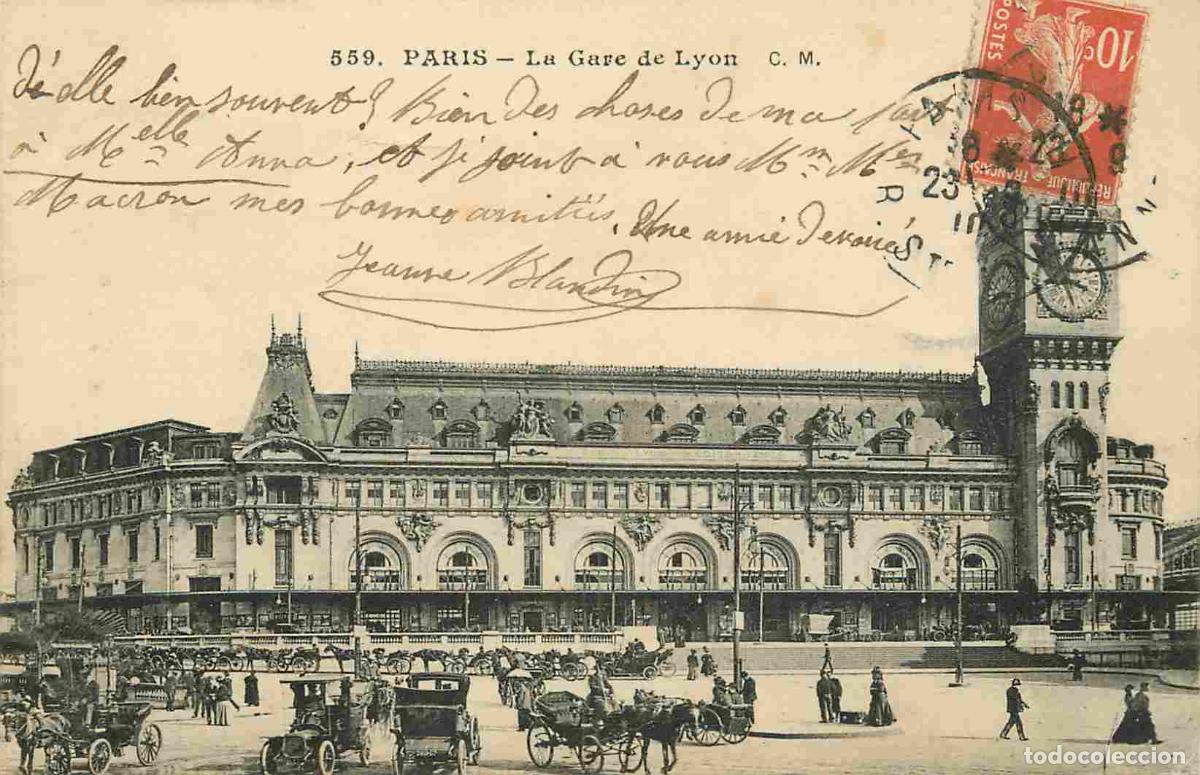 559. PARIS – La Gare de Lyon C. M.
POSTES
10c
RÉPUBLIQUE FRANÇAISE
d'elle bien souvent? Bien des choses de ma part
à Melle Anna, et je joint à vous Mr Mme
Macron mes bonnes amitiés. Une amie dévouée
Jeanne Blandin
todocoleccion